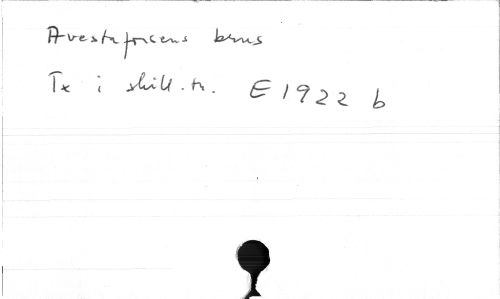 Avestaforsens brus
Tx i skill.tr. E 1922 b